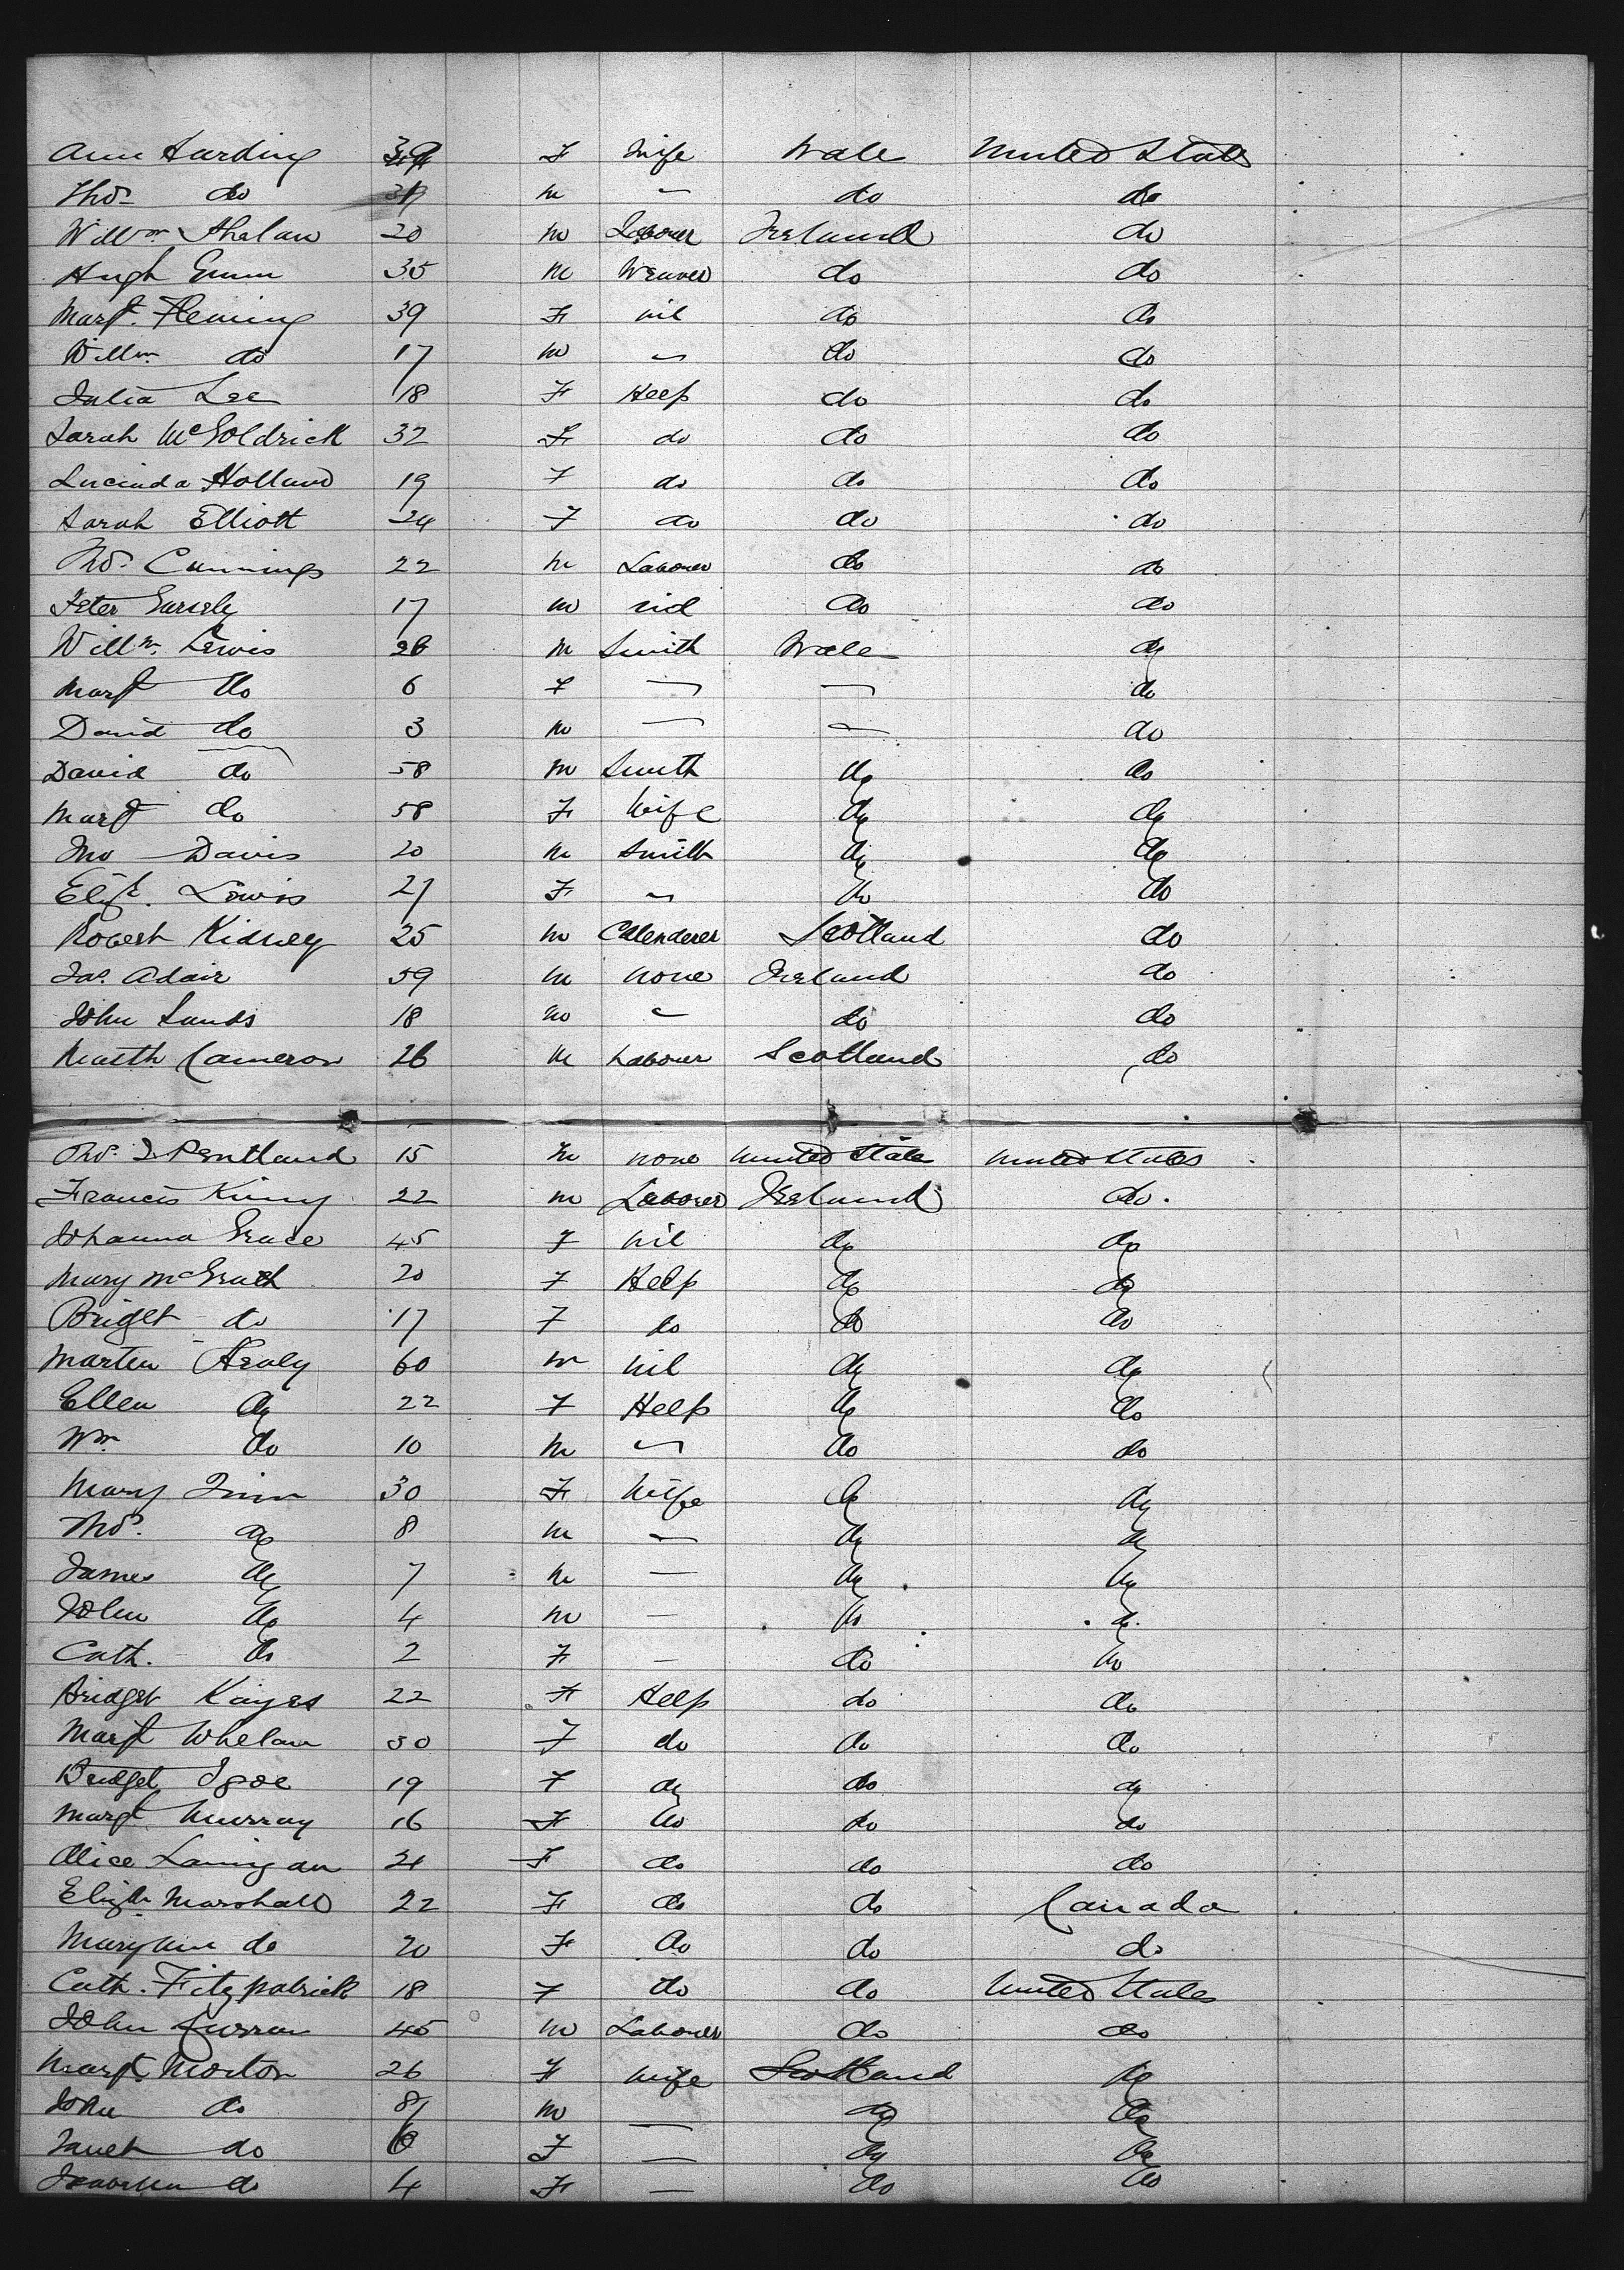 Ann Harding F Wife Wale United States
Thos do M – do do
Willm Phelan 20 M Laborer Ireland do
Hugh Gunn 35 M Weaver do do
Margt. Fleming 39 F nil do do
Willm do 17 M – do do
Julia Lee 18 F Help do do
Sarah McGoldrick 32 F do do do
Lucinda Holland 19 F do do do
Sarah Elliott 24 F do do do
Thos. Cummings 22 M Laborer do do
Peter 17 M nil do do
Willm. Lewis 26 M Smith Wale do
Margt do 6 F – – do
David do 3 M – – do
David do 58 M Smith do do
Margt do 58 F Wife do do
Jno Davis 20 M Smith do do
Elizt. Lewis 27 F – do do
Robert Kidney 25 M Calenderer Scotland do
Jas. Adair 59 M none Ireland do
John Sands 18 M – do do
Matth. Cameron 26 M Labour Scotland do
Thos. J Pentland 15 M none United State United States
Francis King 22 M Laborer Ireland do.
Johanna Grace 45 F nil do do
Mary McGrath 20 F Help do do
Bridget do 17 F do do do
Marten Healy 60 M nil do do
Ellen do 22 F Help do do
Wm do 10 M – do do
Mary 30 F Wife do do
Thos. do 8 M – do do
James do 7 M – do do
John do 4 M – do do
Cath. do 2 F – do do
Bridget Kayes 22 F Help do do
Margt Whelan 30 F do do do
Bridget Igoe 19 F do do do
Margt Murray 16 F do do do
Alice Lanigan 21 F do do do
Elizth Marshall 22 F do do Canada
Maryann do 20 F do do do
Cath. Fitzpatrick 18 F do do United States
John Curran 45 M Laborer do do
Margt. Morton 26 F Wife Scotland do
John do 8 M – do do
Janet do 6 F – do do
Isabella do 4 F – do do